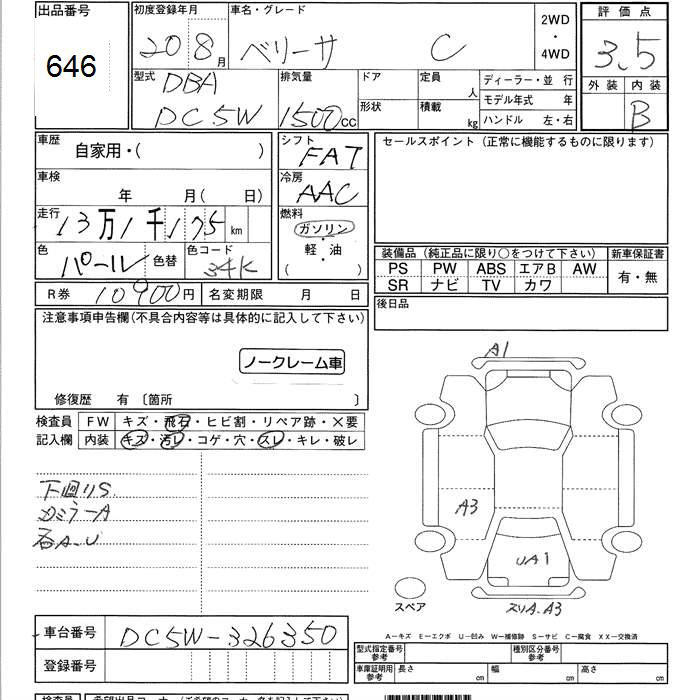 出品番号
646
初度登録年月
20 8月
車名・グレード
ベリーサ C
2WD
・
4WD
評価点
3.5
外装 内装
B
型式
DBA
DC5W
排気量
1500cc
ドア
形状
定員
人
積載
kg
ディーラー・並 行
モデル年式 年
ハンドル 左・右
車歴
自家用・( )
車検
年 月( 日)
走行
13万1千175km
色
パール
色替
色コード
34K
シフト
FAT
冷房
AAC
燃料
ガソリン
・
軽・油
・
( )
セールスポイント(正常に機能するものに限ります)
装備品(純正品に限り○をつけて下さい) 新車保証書
PS PW ABS エアB AW
SR ナビ TV カワ
有・無
R券 10900円 名変期限 月 日
後日品
注意事項申告欄(不具合内容等は具体的に記入して下さい)
ノークレーム車
修復歴 有〔箇所 〕
検査員 FW キズ・飛石・ヒビ割・リペア跡・×要
記入欄 内装 キズ・汚レ・コゲ・穴・スレ・キレ・破レ
下廻りS
ミラーA
石A.U
A1
A3
UA1
スリA.A3
スペア
A―キズ E―エクボ U―凹み W―補修跡 S―サビ C―腐食 XX―交換済
車台番号 DC5W-326350
登録番号
型式指定番号
参考
種別区分番号
参考
車庫証明用
参考
長さ cm 幅 cm 高さ cm